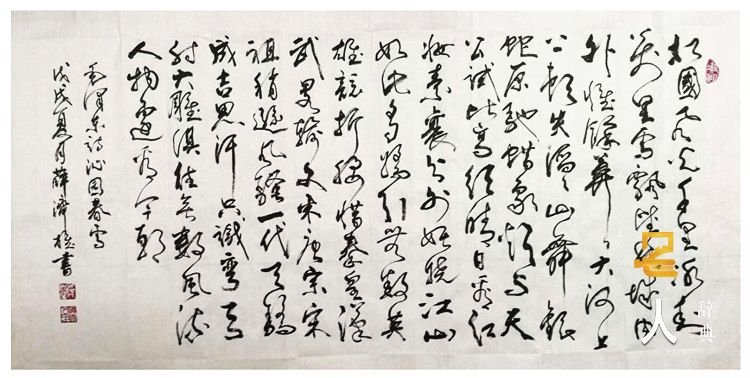 北國風光千里冰封
萬里雪飄望長城内
外惟餘莽莽大河上
下頓失滔滔山舞銀
蛇原馳蜡象欲与天
公試比高須晴日看红
妝素裹分外妖嬈江山
如此多嬌引無數英
雄競折腰惜秦皇漢
武略輸文采唐宗宋
祖稍遜風騷一代天驕
成吉思汗只識彎弓
射大雕俱往矣數風流
人物還看今朝
毛澤東詩沁园春雪
戊戌夏月薛濟書
名人辞典